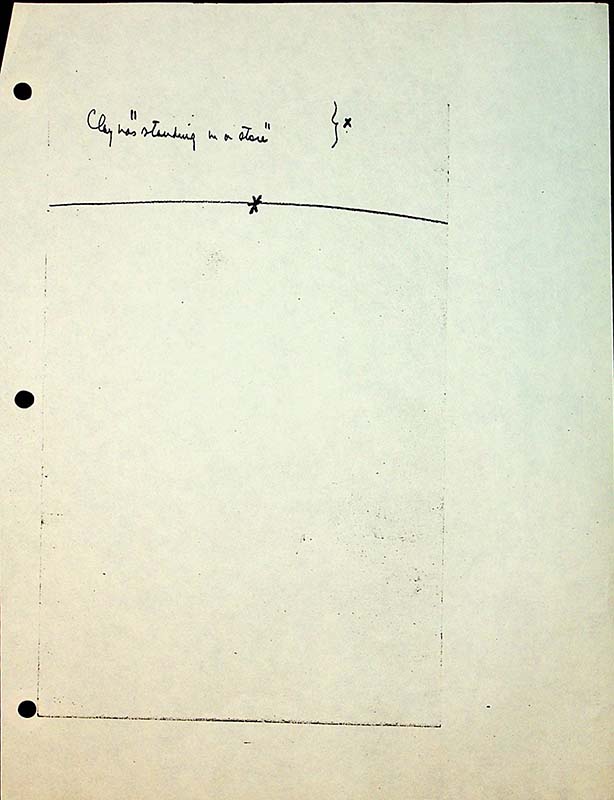 Clay was "standing in a store" } x